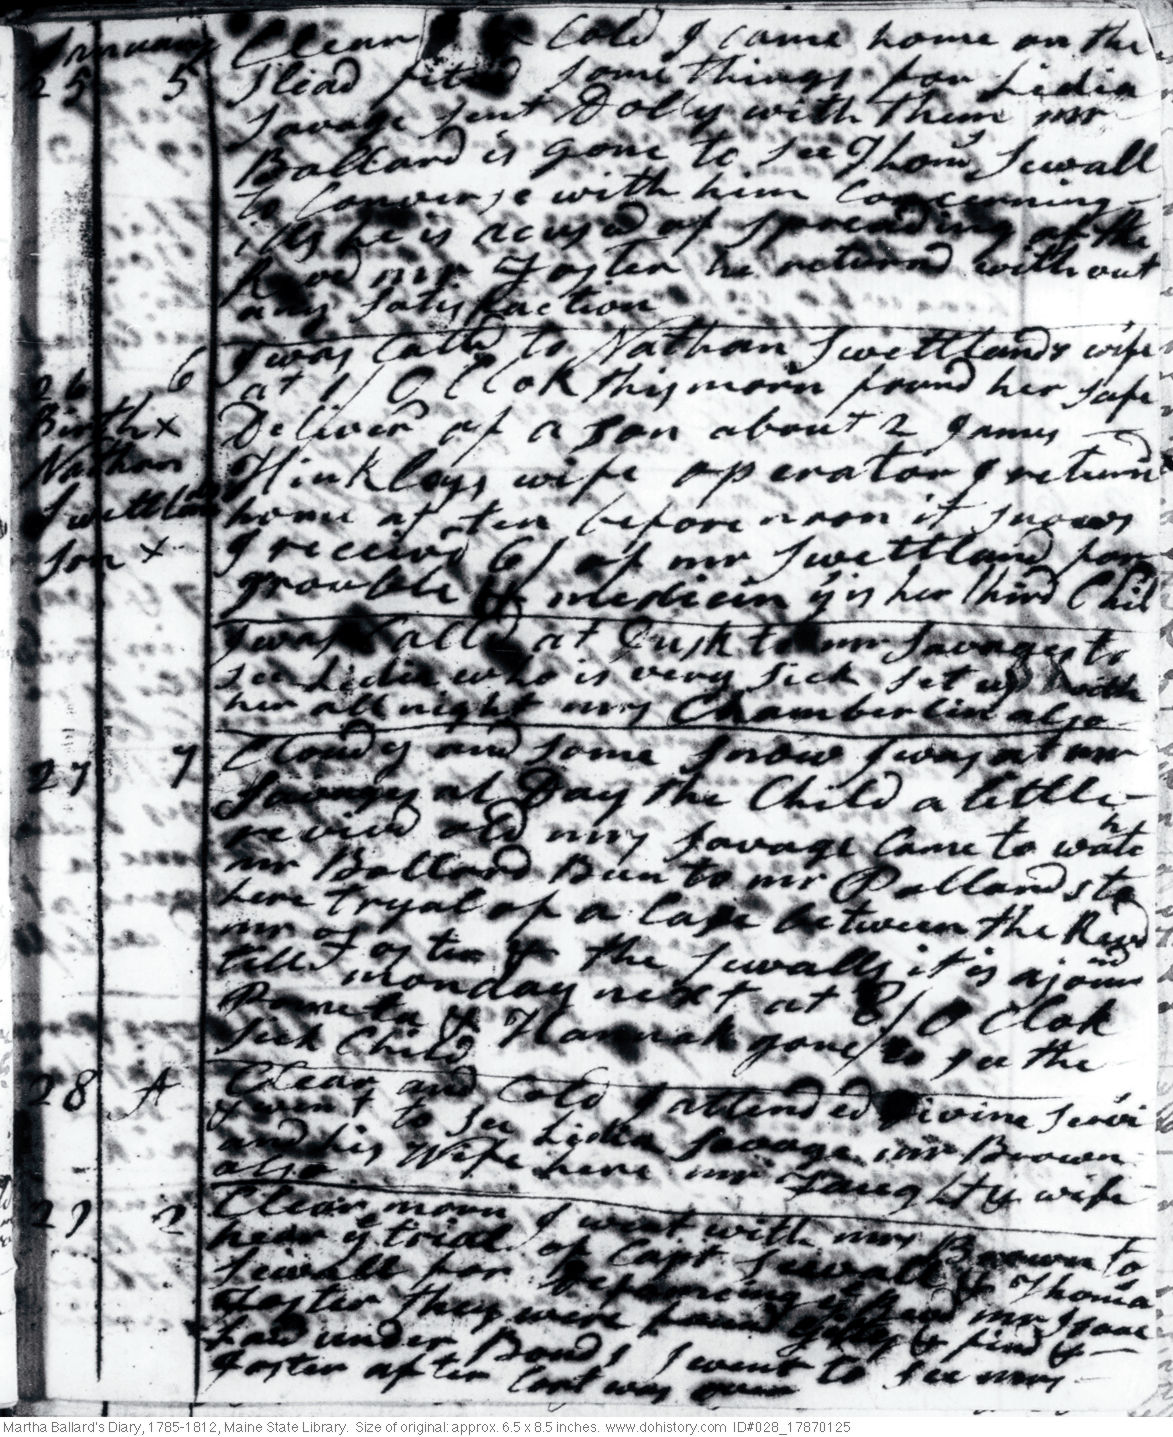 January Clear Cold I came home on the
25 5 Slead fitd some things for Lidia
Savage sent Dolly with them mr
Ballard is gone to see Thoms Sewall
to Converse with him Concerning
he is acused of spreading of the
Revd mr Foster he returnd without
any satisfaction
I was Calld to Nathan Swettlands wife
26 6 at 1/ O Clok this morn found her safe
Birth x Deliverd of a son about 2 James
Nathan Hinkleys wife operator I returnd
Swettlands home at ten before noon it snows
son x I receivd 6/ of mr Swettland for
trouble & medicin ys is her third Chil
I was Calld at Dusk to mr Savages to
see Lidia who is very sick set up with
her all night mrs Chamberlin also
27 7 Cloudy and some snow I was at mr
Savages at Day the Child a little
revivd old mrs Savage Came to watch
mr Ballard Been to mr Pollards to
here tryal of a Case between the Revd
mr Foster & the Sewalls it is ajournd
till monday next at 8/ O Clok
Parmela & Hannah gone to see the
sick Child
28 A Clear and Cold I attended Divine Servi
I went to see Lidia Savage mr Brown
and his Wife here mr Town & wife
also
29 2 Clear morn I went with mrs Brown to
hear ye trial of Capt Sewall & Thomas
Sewall for Defameing ye Revd mr Isaac
Foster they were found gilty & find &
Laid under Bonds I went to see mrs
Foster after Cort was over
Martha Ballard's Diary, 1785-1812, Maine State Library. Size of original: approx. 6.5 x 8.5 inches. www.dohistory.com ID#028_17870125